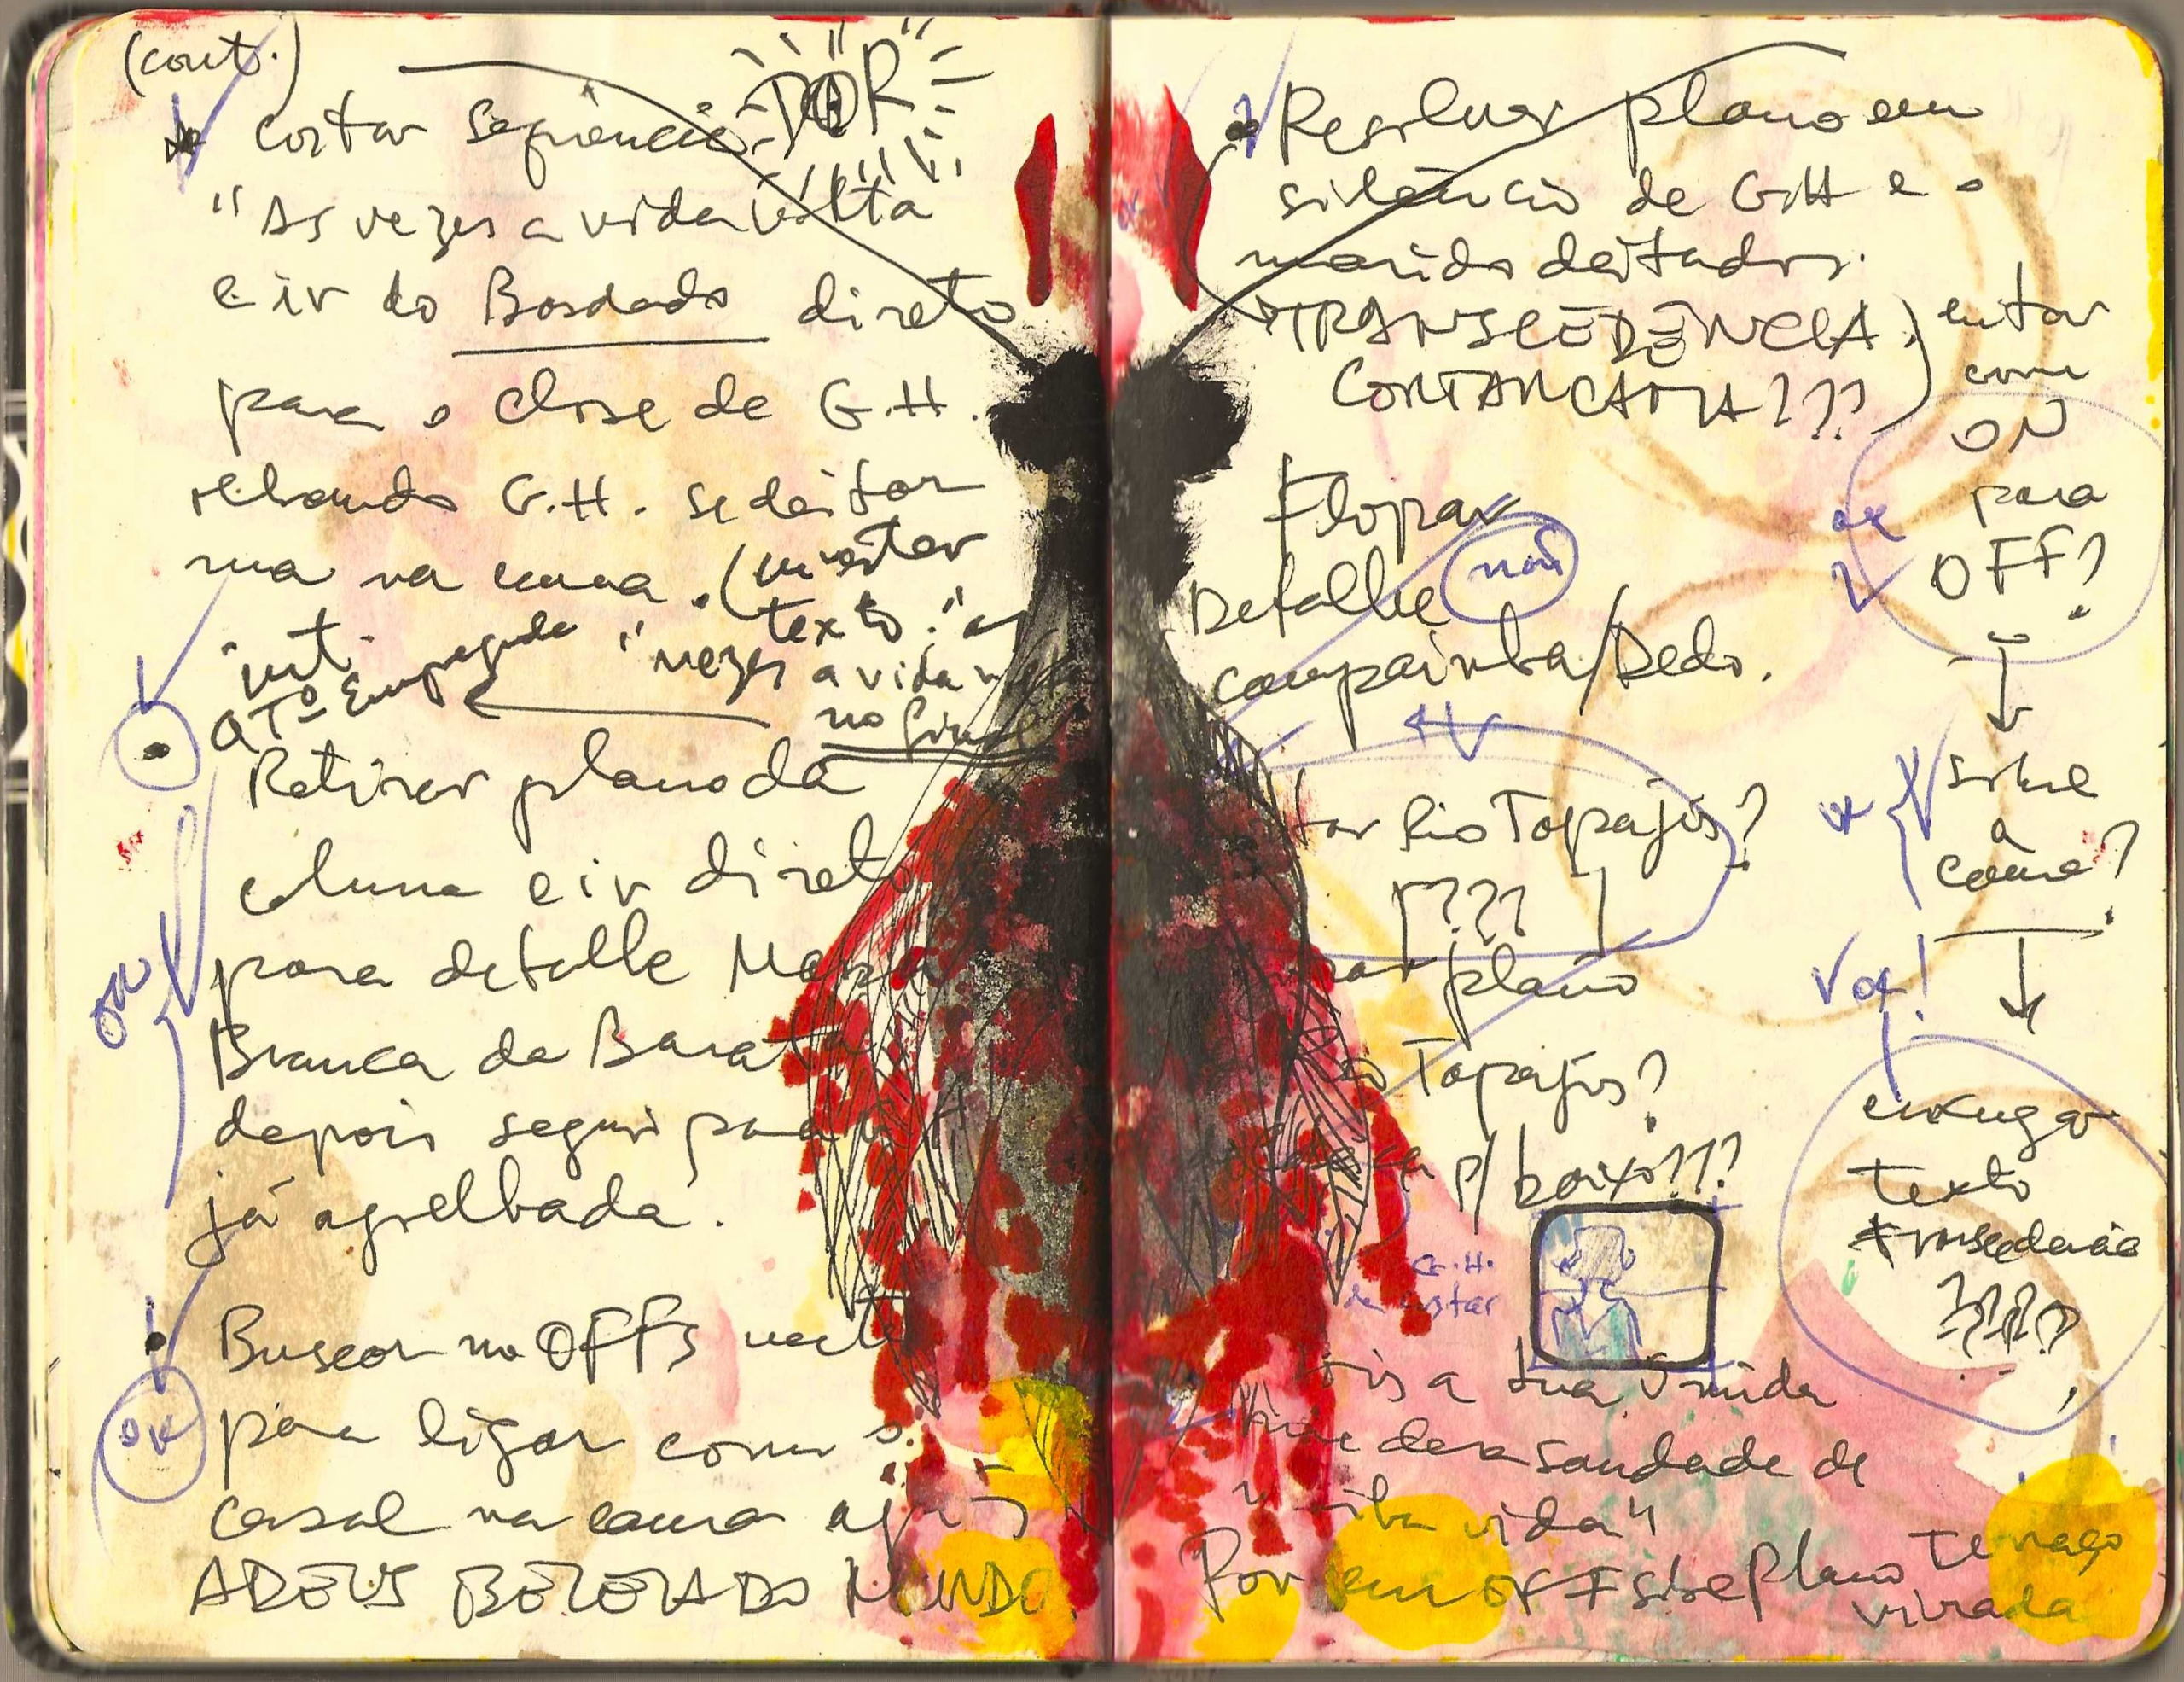 (cont.)
cortar sequência DOR
"As vezes a vida volta
e ir do Bordado direto
para o close de G.H.
G.H. se deitar
na cama. (inserter
texto: "as
vezes a vida volta
no final
int.
QTº Empregada
Retirar plano da
coluna e ir direto
para detalhe Massa
Branca da Barata
depois segui para
já agoelhada.
OK
Buscar no OFFs
para ligar com o
casal na cama após
ADEUS BELEZA DO MUNDO
OK
Resilver plano em
silêncio de GH e o
marido deitados.
TRANSCEDÊNCIA
CORTAR CAMA???)
entar
com
ON
para
OFF?
ok
Flopar
Detalhe não
campainha/Dedo.
sobre
a
cama?
ok
Rio Tapajós?
???
plano
Tapajós?
p/ baixo???
ok!
enxugar
texto
transcedencia
????
G.H.
de costar
a tua úmida
me dera saudade de
vida"
Por em OFF sobre Plano Tenago
virada